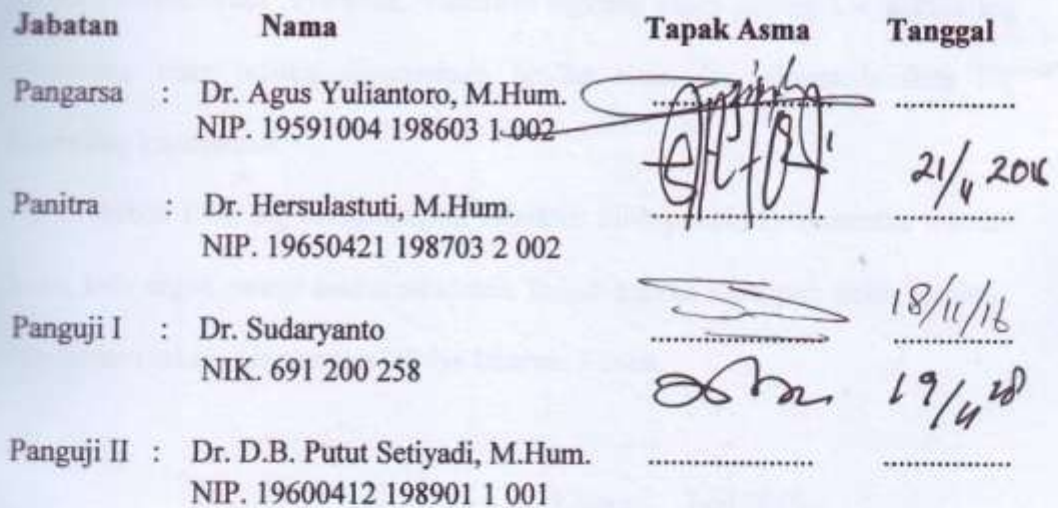 Jabatan Nama Tapak Asma Tanggal
Pangarsa : Dr. Agus Yuliantoro, M.Hum. .................. ...............
NIP. 19591004 198603 1 002
21/11 2016
Panitra : Dr. Hersulastuti, M.Hum. .................. ...............
NIP. 19650421 198703 2 002
18/11/16
Panguji I : Dr. Sudaryanto .................. ...............
NIK. 691 200 258
19/11
Panguji II : Dr. D.B. Putut Setiyadi, M.Hum. .................. ...............
NIP. 19600412 198901 1 001